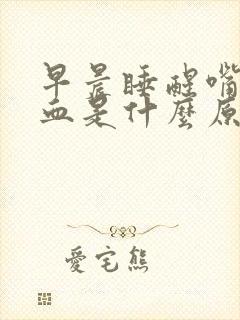 早晨睡醒嘴
血是什麼原
愛宅熊